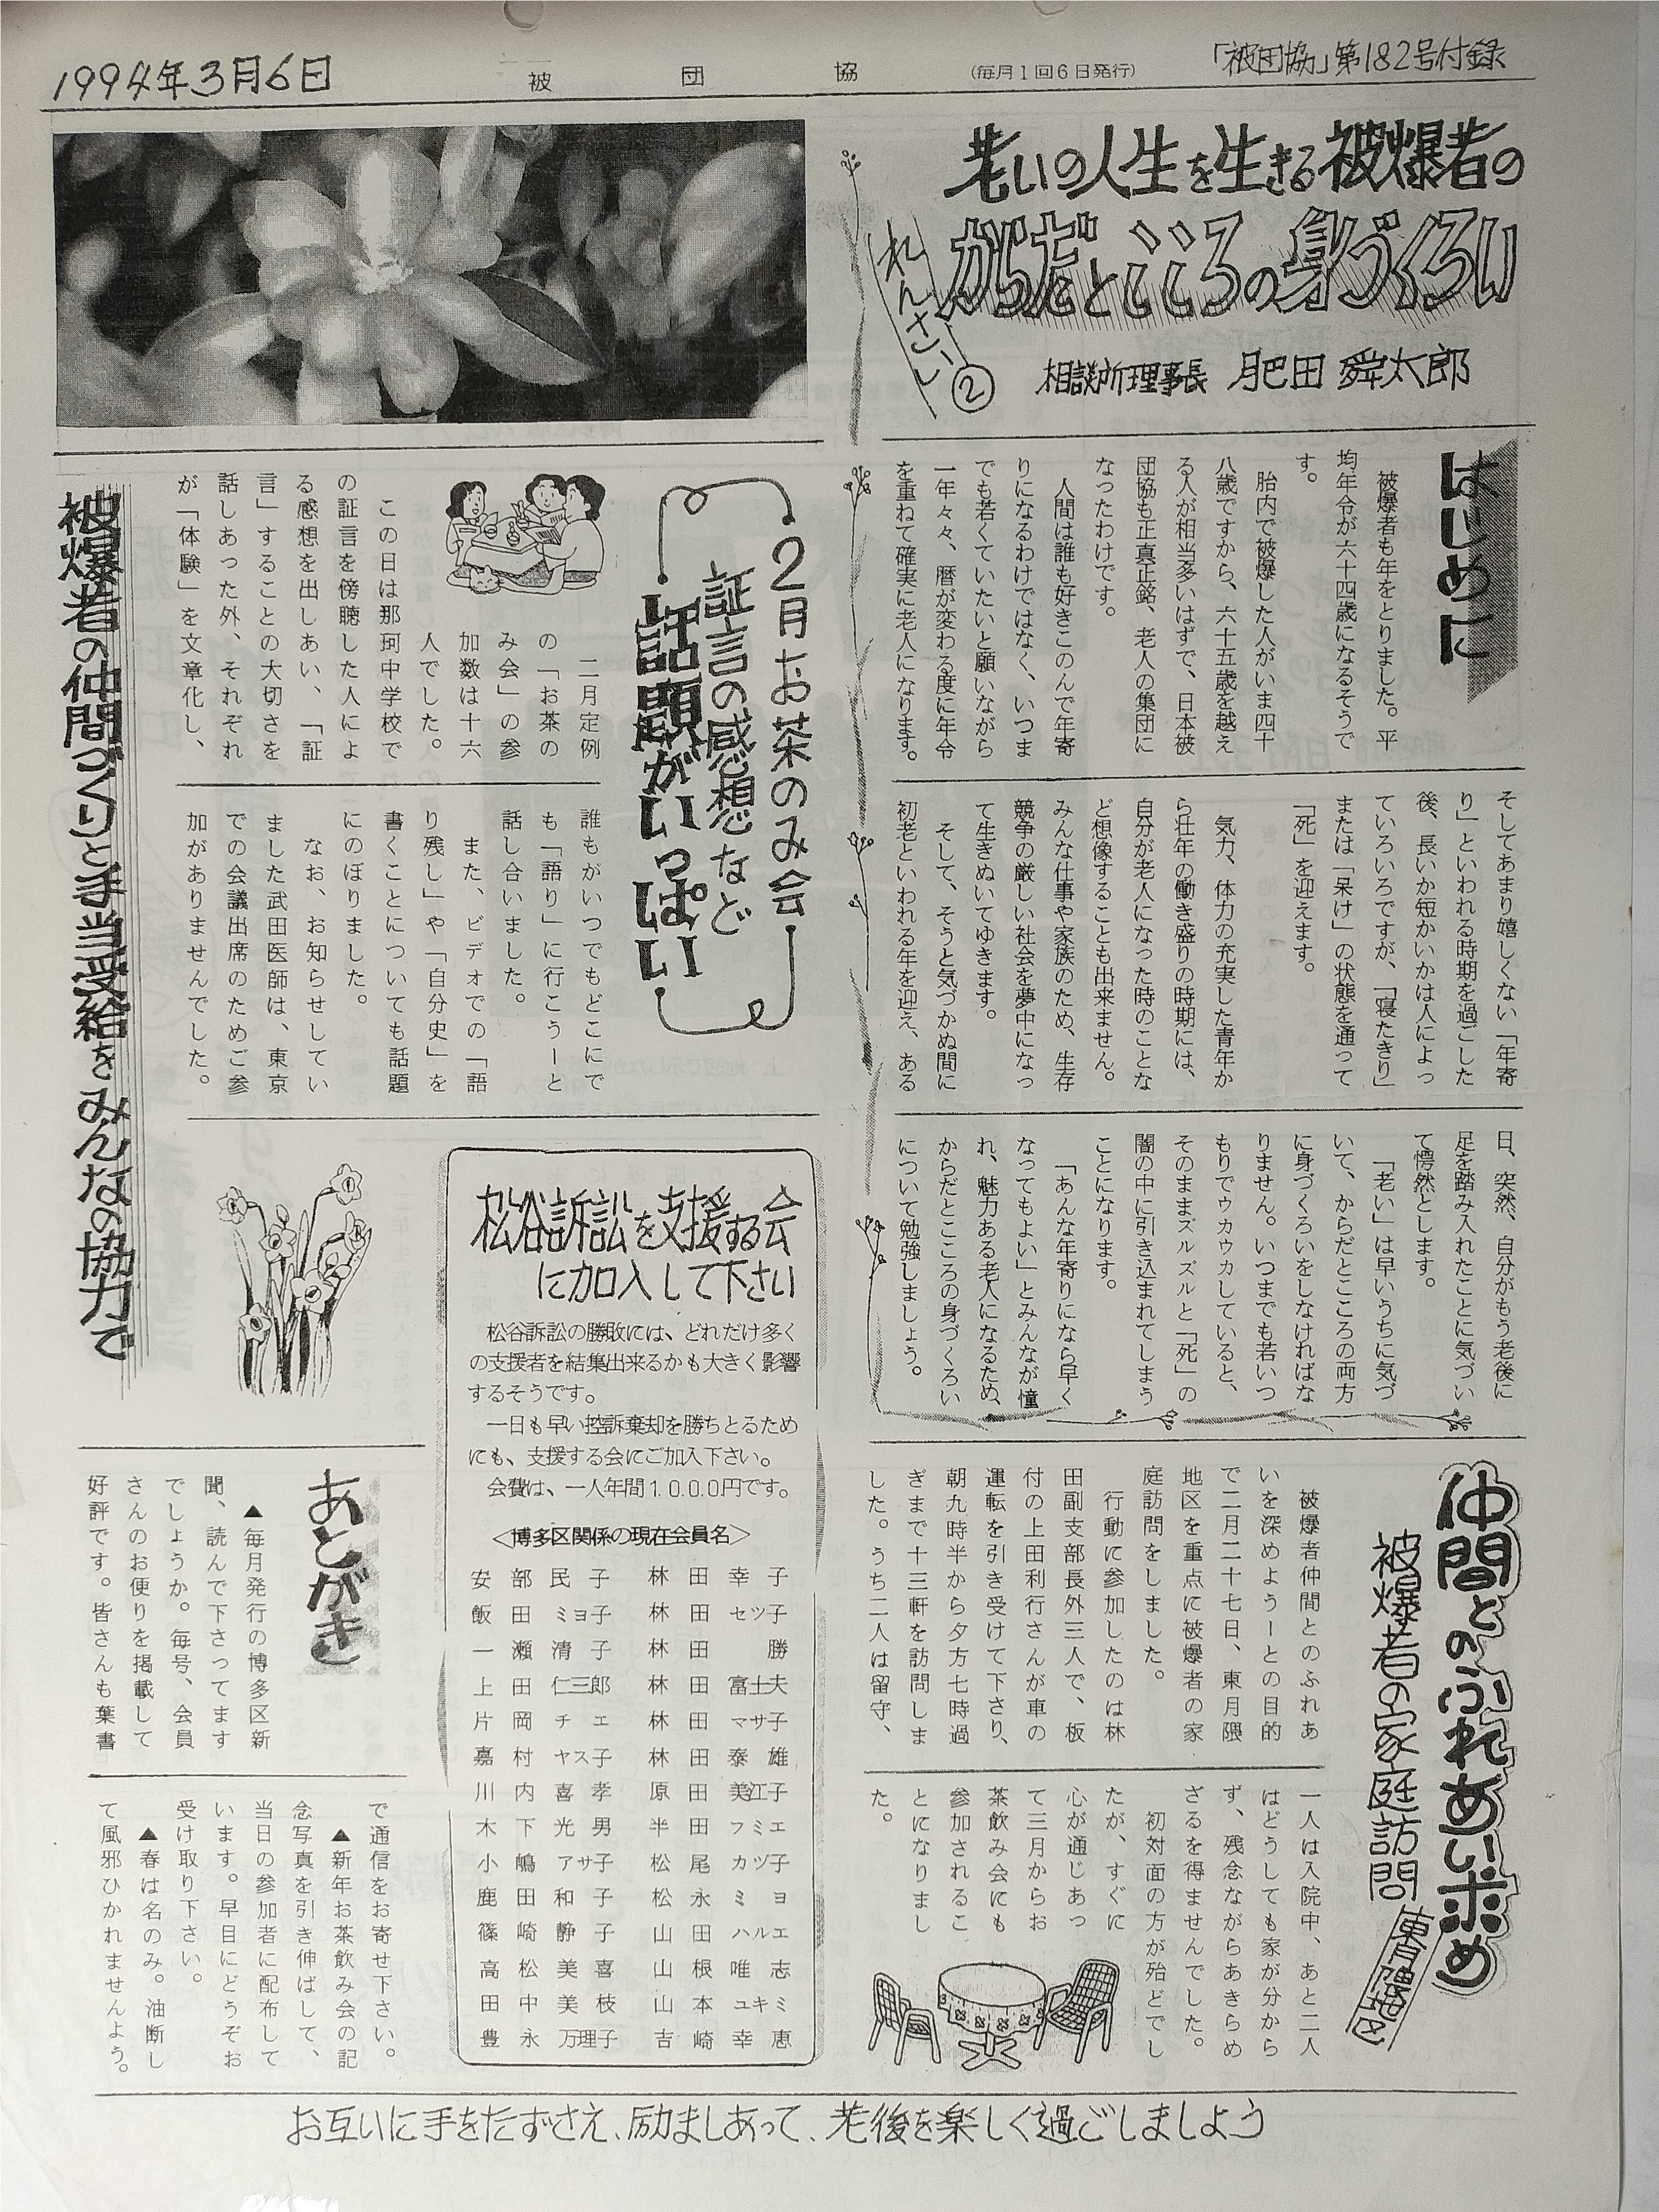 「被団協」第182号付録
(毎月1回6日発行)
被団協
1994年3月6日
老いの人生を生きる被爆者の
からだとこころの身づくろい
れんさい②
相談所理事長 肥田舜太郎
はじめに
被爆者も年をとりました。平
均年令が六十四歳になるそうで
す。
胎内で被爆した人がいま四十
八歳ですから、六十五歳を越え
る人が相当多いはずで、日本被
団協も正真正銘、老人の集団に
なったわけです。
人間は誰も好きこのんで年寄
りになるわけではなく、いつま
でも若くていたいと願いながら
一年々々、暦が変わる度に年令
を重ねて確実に老人になります。
そしてあまり嬉しくない「年寄
り」といわれる時期を過ごした
後、長いか短かいかは人によっ
ていろいろですが、「寝たきり」
または「呆け」の状態を通って
「死」を迎えます。
気力、体力の充実した青年か
ら壮年の働き盛りの時期には、
自分が老人になった時のことな
ど想像することも出来ません。
みんな仕事や家族のため、生存
競争の厳しい社会を夢中になっ
て生きぬいてゆきます。
そして、そうと気づかぬ間に
初老といわれる年を迎え、ある
日、突然、自分がもう老後に
足を踏み入れたことに気づい
て愕然とします。
「老い」は早いうちに気づ
いて、からだとこころの両方
に身づくろいをしなければな
りません。いつまでも若いつ
もりでウカウカしていると、
そのままズルズルと「死」の
闇の中に引き込まれてしまう
ことになります。
「あんな年寄りになら早く
なってもよい」とみんなが憧
れ、魅力ある老人になるため、
からだとこころの身づくろい
について勉強しましょう。
2月お茶のみ会
証言の感想など
話題がいっぱい
二月定例
の「お茶の
み会」の参
加数は十六
人でした。
この日は那珂中学校で
の証言を傍聴した人によ
る感想を出しあい、「証
言」することの大切さを
話しあった外、それぞれ
が「体験」を文章化し、
誰もがいつでもどこにで
も「語り」に行こうーと
話し合いました。
また、ビデオでの「語
り残し」や「自分史」を
書くことについても話題
にのぼりました。
なお、お知らせしてい
ました武田医師は、東京
での会議出席のためご参
加がありませんでした。
被爆者の仲間づくりと手当受給をみんなの協力で
仲間とのふれあい求め
被爆者の家庭訪問
東月隈地区
被爆者仲間とのふれあ
いを深めようーとの目的
で二月二十七日、東月隈
地区を重点に被爆者の家
庭訪問をしました。
行動に参加したのは林
田副支部長外三人で、板
付の上田利行さんが車の
運転を引き受けて下さり、
朝九時半から夕方七時過
ぎまで十三軒を訪問しま
した。うち二人は留守、
一人は入院中、あと二人
はどうしても家が分から
ず、残念ながらあきらめ
ざるを得ませんでした。
初対面の方が殆どでし
たが、すぐに
心が通じあっ
て三月からお
茶飲み会にも
参加されるこ
とになりまし
た。
松谷訴訟を支援する会
に加入して下さい
松谷訴訟の勝敗には、どれだけ多く
の支援者を結集出来るかも大きく影響
するそうです。
一日も早い控訴棄却を勝ちとるため
にも、支援する会にご加入下さい。
会費は、一人年間1.0.0.0円です。
<博多区関係の現在会員名>
安部民子 林田幸子
飯田ミヨ子 林田セツ子
一瀬清子 林田勝
上田仁三郎 林田富士夫
片岡チエ 林田マサ子
嘉村ヤス子 林田泰雄
川内喜孝 原田美江子
木下光男 半田フミエ
小嶋アサ子 松尾カツ子
鹿田和子 松永ミヨ
篠崎静子 山田ハルエ
高松美喜 山根唯志
田中美枝 山本ユキミ
豊永万理子 吉崎幸恵
あとがき
▲毎月発行の博多区新
聞、読んで下さってます
でしょうか。毎号、会員
さんのお便りを掲載して
好評です。皆さんも葉書
で通信をお寄せ下さい。
▲新年お茶飲み会の記
念写真を引き伸ばして、
当日の参加者に配布して
います。早目にどうぞお
受け取り下さい。
▲春は名のみ。油断し
て風邪ひかれませんよう。
お互いに手をたずさえ、励ましあって、老後を楽しく過ごしましょう